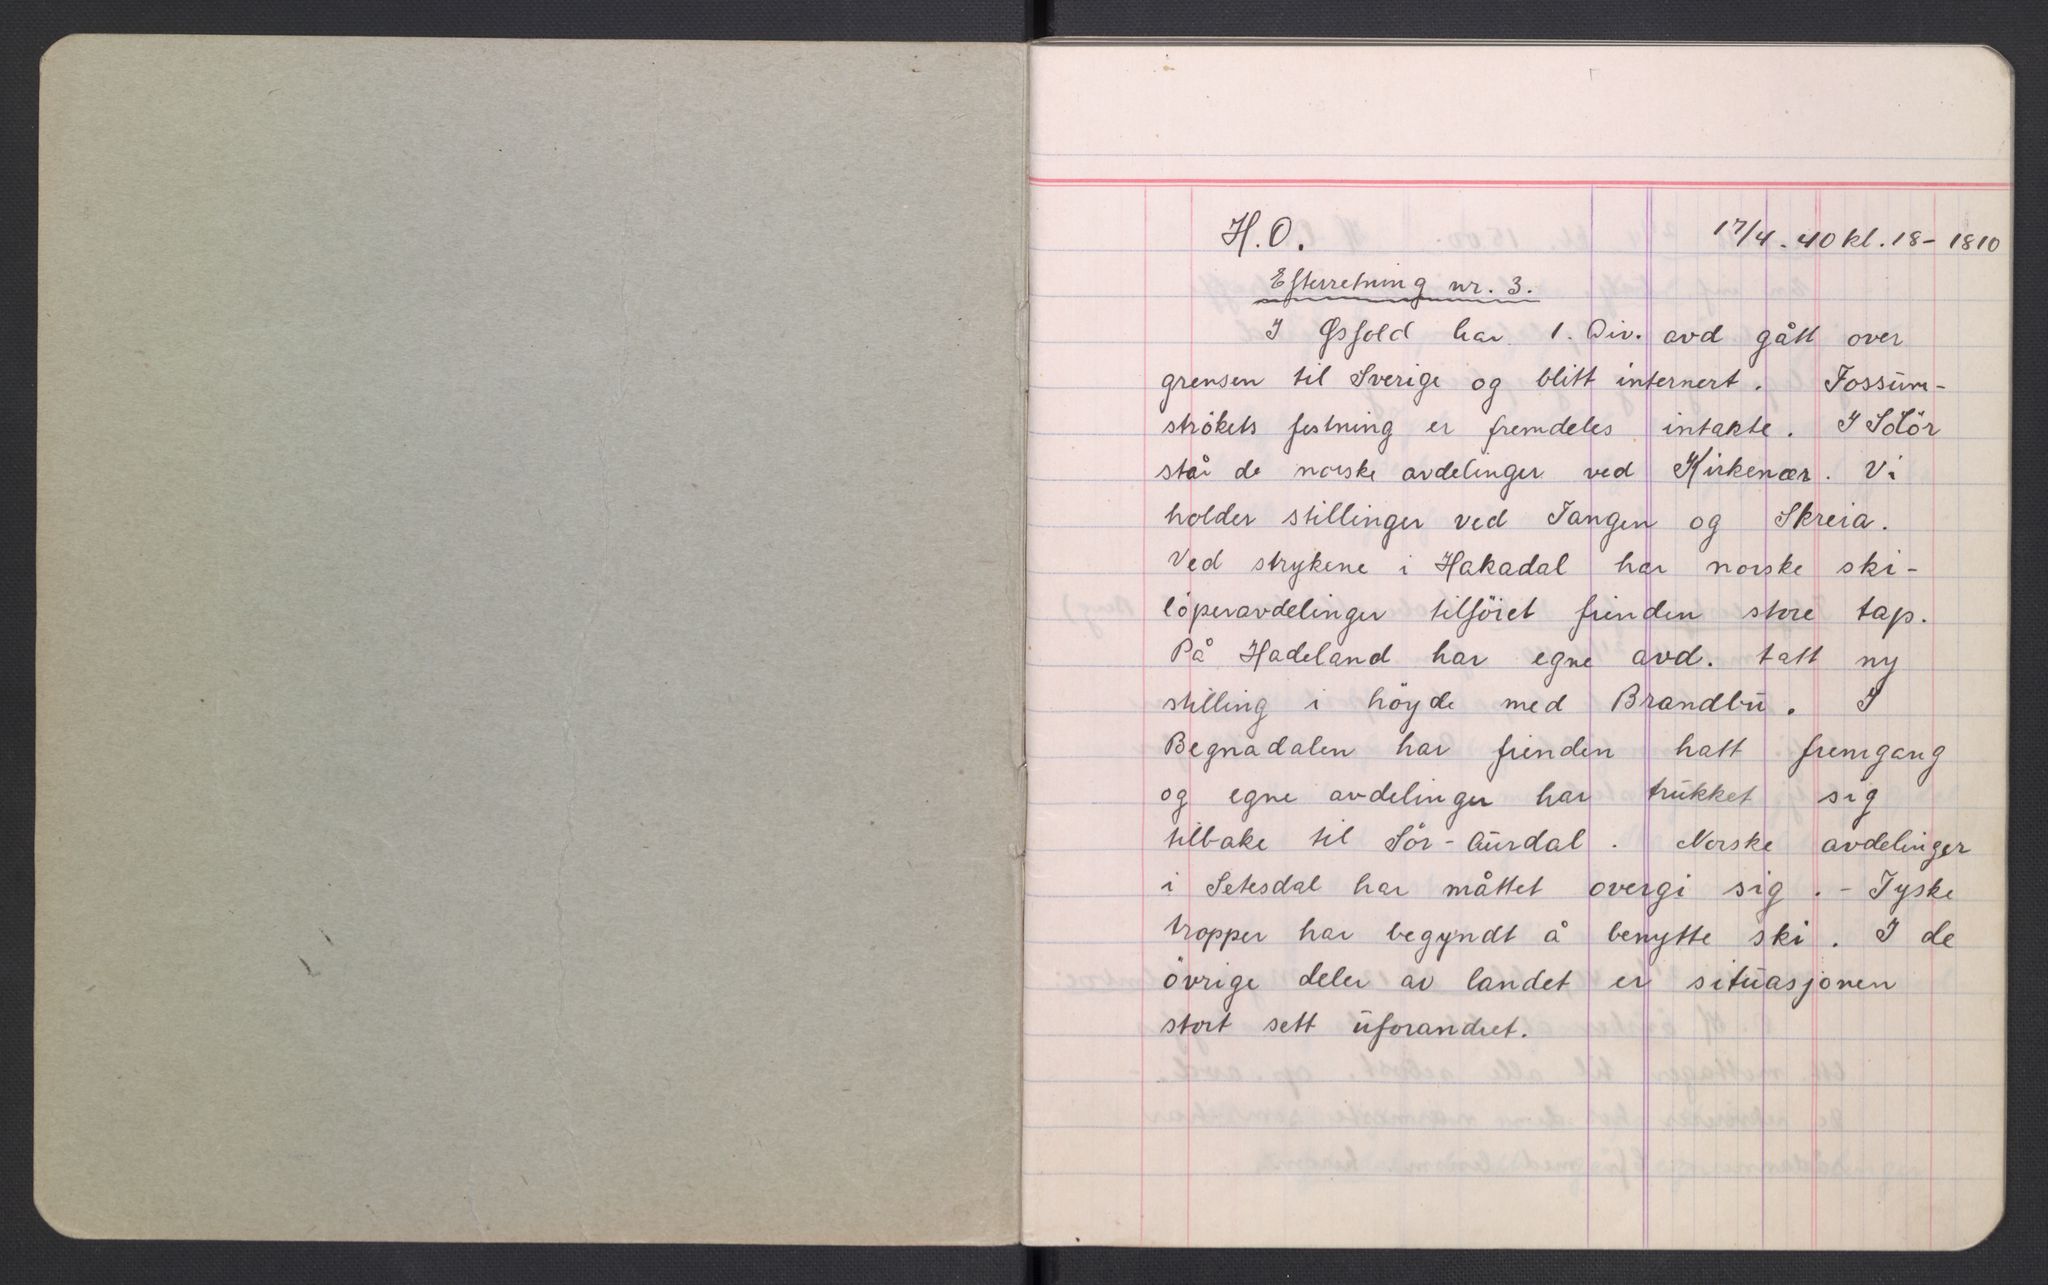 H.O. 17/4.40 kl. 18-1810
Efterretning nr. 3.
I Øsfold har 1. Div. avd gått over
grensen til Sverige og blitt internert. Fossum-
strökets festning er fremdeles intakte. I Solör
står de norske avdelinger ved Kirkenær. Vi
holder stillinger ved Tangen og Skreia.
Ved strykene i Hakadal har norske ski-
löperavdelinger tilföiet fienden store tap.
På Hadeland har egne avd. tatt ny
stilling i höyde med Brandbu. I
Begnadalen har fienden hatt fremgang
og egne avdelinger har trukket sig
tilbake til Sör-Aurdal. Norske avdelinger
i Setesdal har måttet overgi sig. - Tyske
tropper har begyndt å benytte ski. I de
övrige deler av landet er situasjonen
stort sett uforandret.